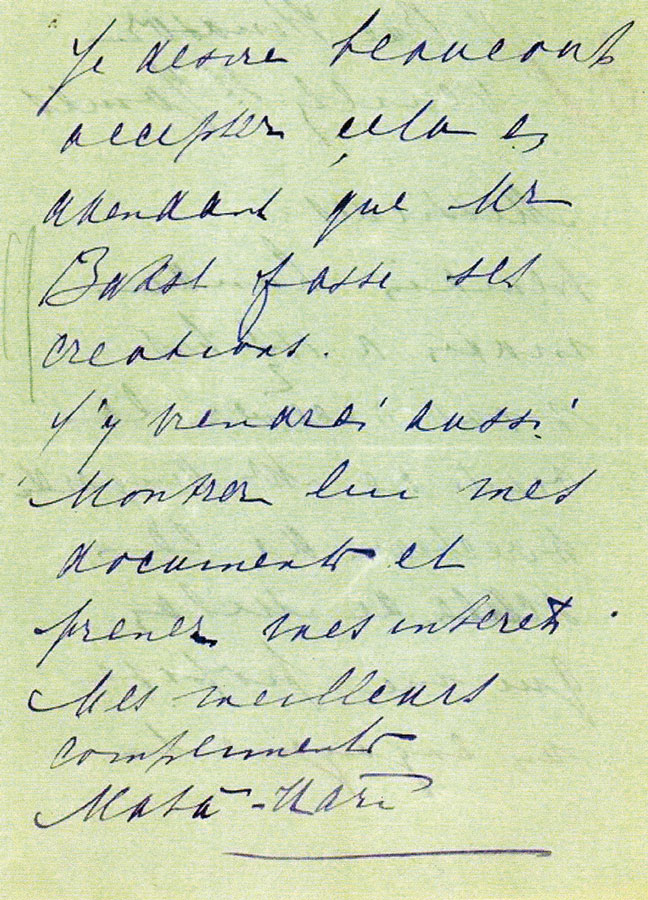 Je desire beaucoup
accepter cela en
attendant que Mr
Bakst fasse ses
creations.
J'y viendrai aussi.
Montrez lui mes
documents et
prenez mes interets.
Mes meilleurs
compliments
Mata-Hari